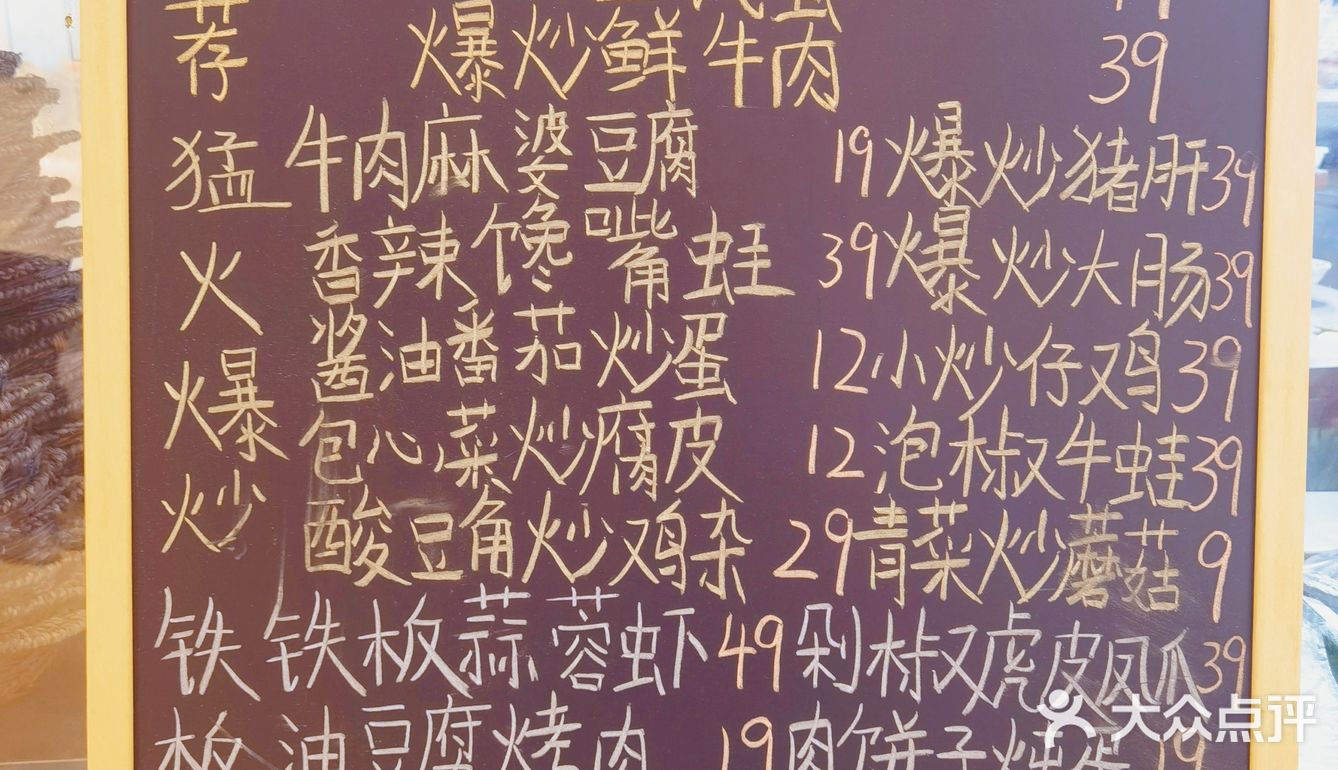 荐 爆炒鲜牛肉 39
猛 牛肉麻婆豆腐 19 爆炒猪肝 39
火 香辣馋嘴蛙 39 爆炒大肠 39
爆 酱油番茄炒蛋 12 小炒仔鸡 39
包心菜炒腐皮 12 泡椒牛蛙 39
炒 酸豆角炒鸡杂 29 青菜炒蘑菇 9
铁 铁板蒜蓉虾 49 剁椒虎皮凤爪 39
板 油豆腐烤肉 19 肉饼子炖蛋 19
大众点评